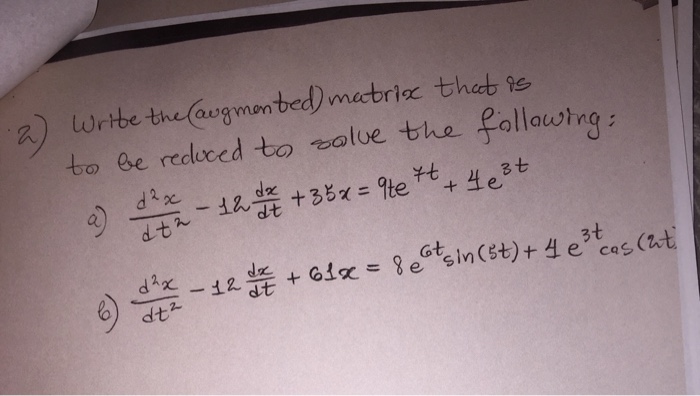 2) Write the (augmented) matrix that is
to be reduced to solve the following:
a) d²x/dt² - 12 dx/dt + 35x = 9te^7t + 4e^3t
b) d²x/dt² - 12 dx/dt + 61x = 8e^6t sin(5t) + 4e^3t cos(2t